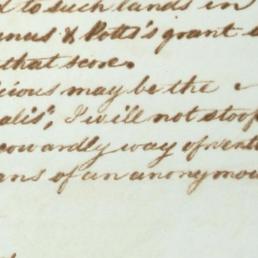 to such lands in
& Potts's grant
that score.
may be the
I will not stoop
cowardly way of
of an anonymou